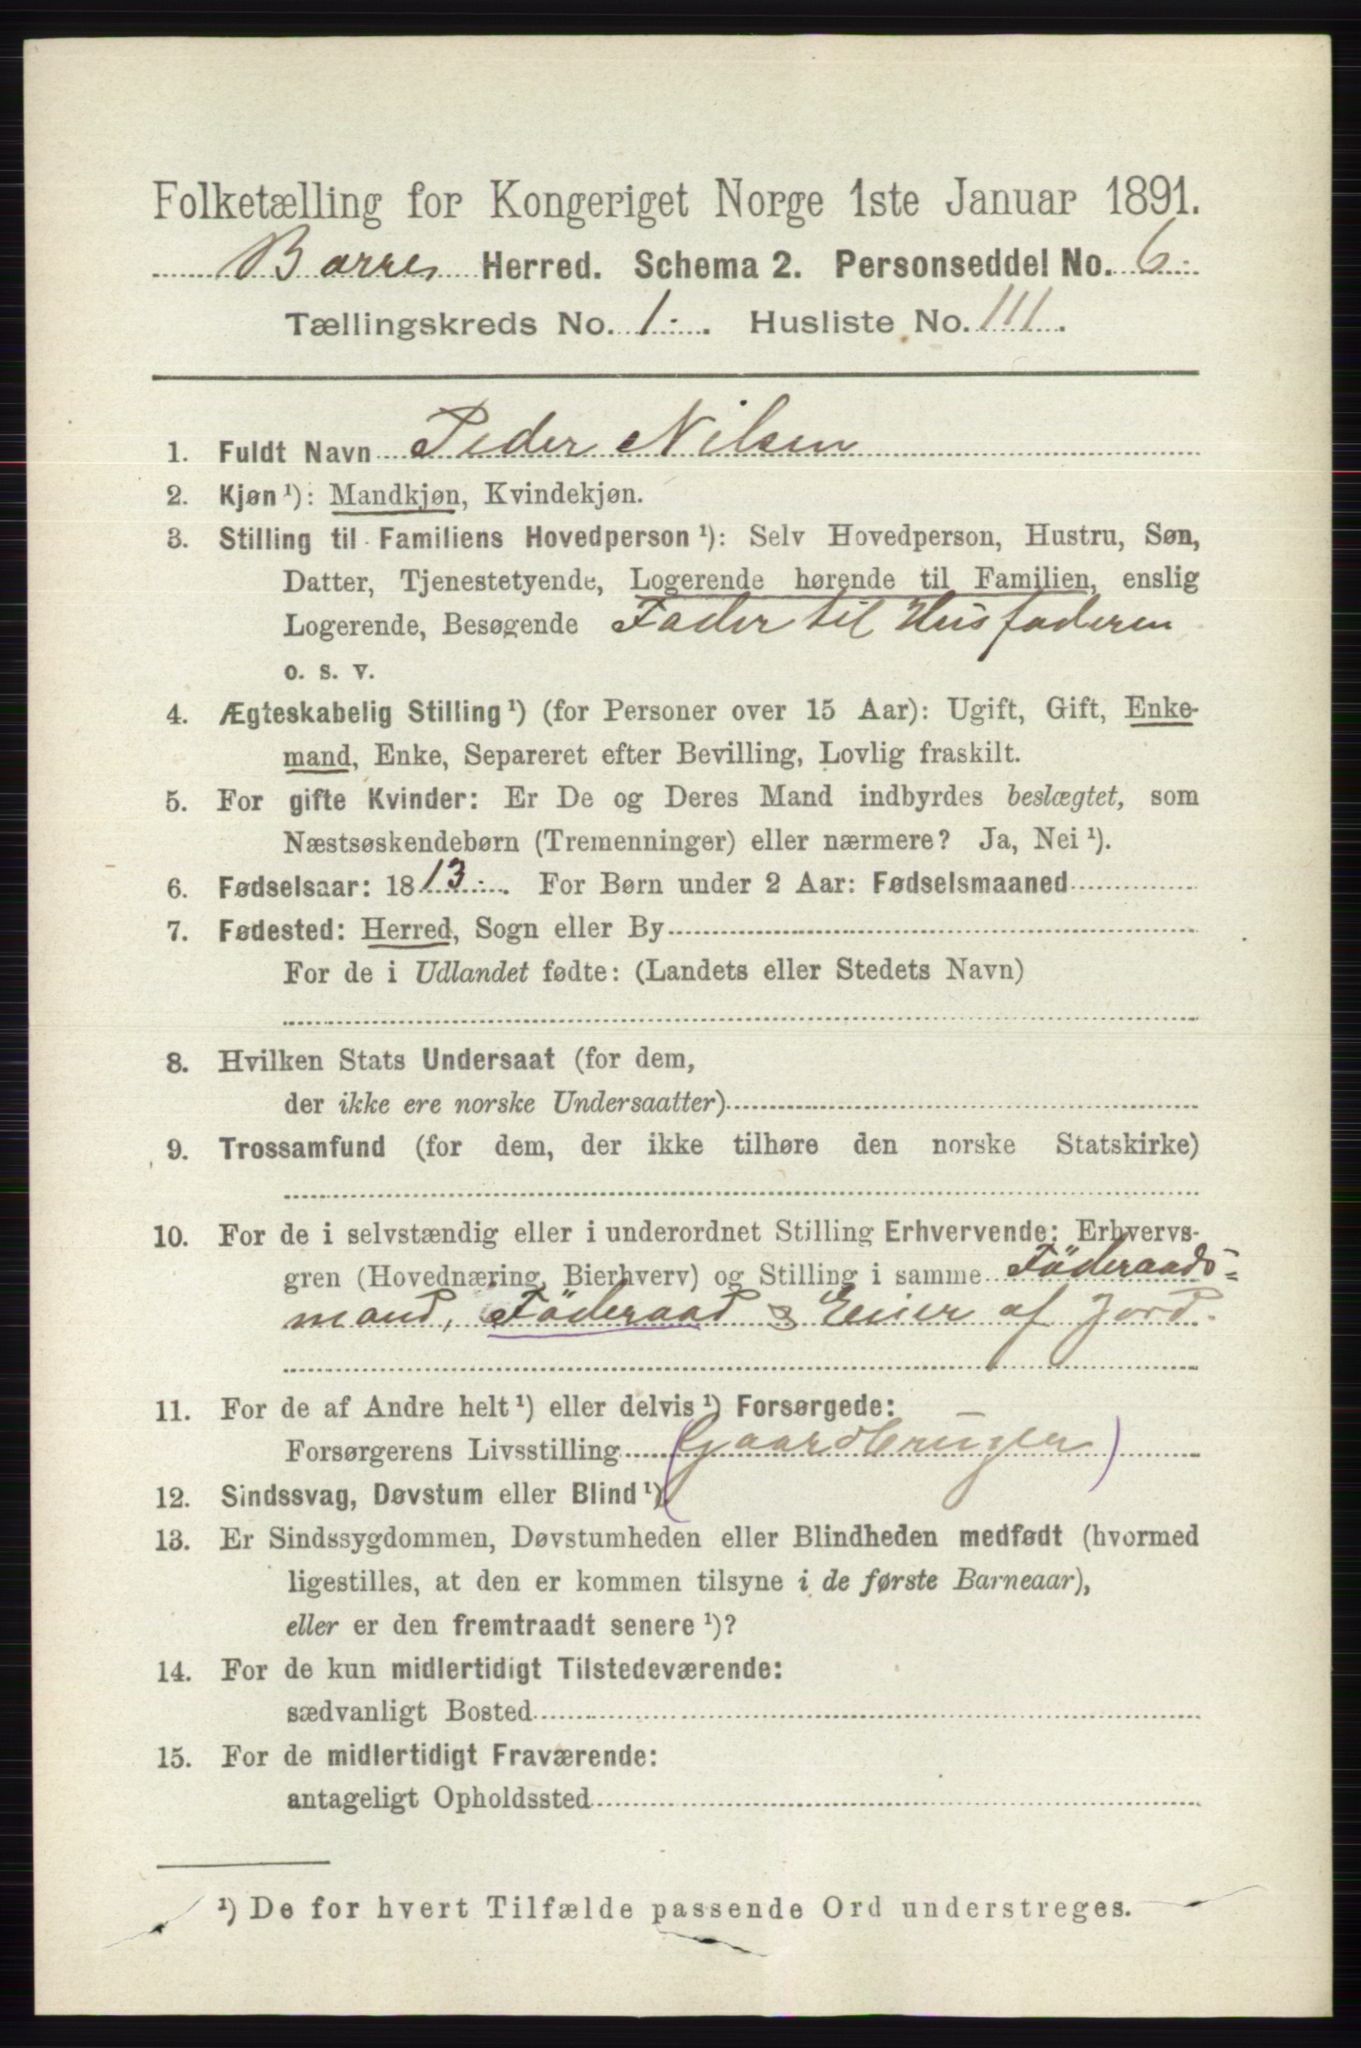 Folketælling for Kongeriget Norge 1ste Januar 1891.
Borre Herred. Schema 2. Personseddel No. 6.
Tællingskreds No. 1. Husliste No. 111.
1. Fuldt Navn Peder Nilsen
2. Kjøn ¹): Mandkjøn, Kvindekjøn.
3. Stilling til Familiens Hovedperson ¹): Selv Hovedperson, Hustru, Søn,
Datter, Tjenestetyende, Logerende hørende til Familien, enslig
Logerende, Besøgende Fader til Husfaderen
o. s. v.
4. Ægteskabelig Stilling ¹) (for Personer over 15 Aar): Ugift, Gift, Enke-
mand, Enke, Separeret efter Bevilling, Lovlig fraskilt.
5. For gifte Kvinder: Er De og Deres Mand indbyrdes beslægtet, som
Næstsøskendebørn (Tremenninger) eller nærmere? Ja, Nei ¹).
6. Fødselsaar: 1813. For Børn under 2 Aar: Fødselsmaaned
7. Fødested: Herred, Sogn eller By
For de i Udlandet fødte: (Landets eller Stedets Navn)
8. Hvilken Stats Undersaat (for dem,
der ikke ere norske Undersaatter)
9. Trossamfund (for dem, der ikke tilhøre den norske Statskirke)
10. For de i selvstændig eller i underordnet Stilling Erhvervende: Erhvervs-
gren (Hovednæring, Bierhverv) og Stilling i samme Föderaads=
mand, Föderaad & Eier af Jord.
11. For de af Andre helt ¹) eller delvis ¹) Forsørgede:
Forsørgerens Livsstilling (Gaardbruger)
12. Sindssvag, Døvstum eller Blind ¹).
13. Er Sindssygdommen, Døvstumheden eller Blindheden medfødt (hvormed
ligestilles, at den er kommen tilsyne i de første Barneaar),
eller er den fremtraadt senere ¹)?
14. For de kun midlertidigt Tilstedeværende:
sædvanligt Bosted
15. For de midlertidigt Fraværende:
antageligt Opholdssted
¹) De for hvert Tilfælde passende Ord understreges.